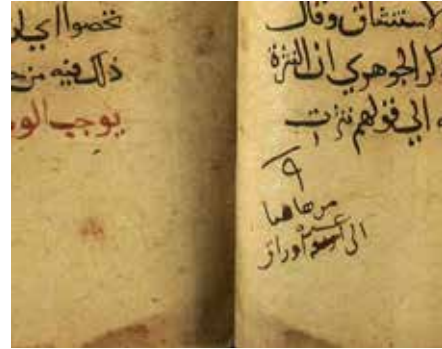 لاستنشاق وقال
كر الجوهري ان النثرة
الي قولهم نثرت
٩
من هاهنا
الى اوراق
ذلك فيه من
يوجب الو